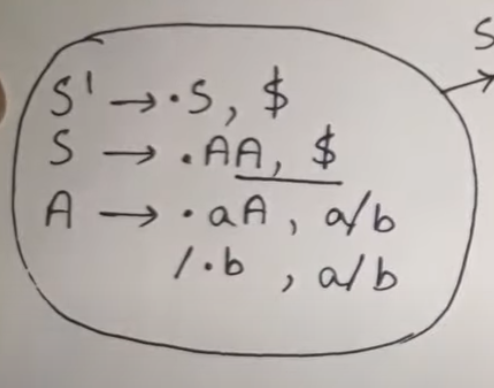 S' → ·S, $
S
S → .AA, $
A → ·aA, a/b
/·b, a/b